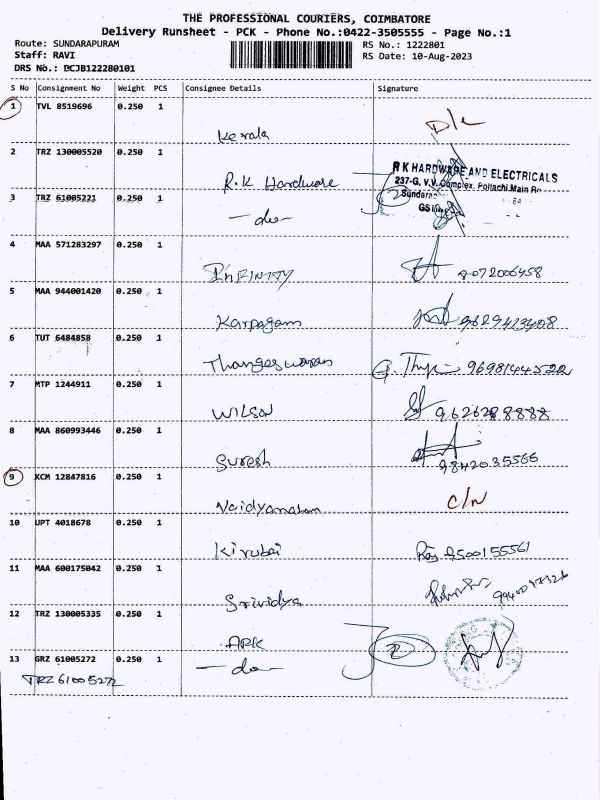 THE PROFESSIONAL COURIERS, COIMBATORE
Delivery Runsheet - PCK - Phone No.:0422-3505555 - Page No.:1
Route: SUNDARAPURAM RS No.: 1222801
Staff: RAVI RS Date: 10-Aug-2023
DRS No.: BCJB122280101
S No Consignment No Weight PCS Consignee Details Signature
1 TVL 8519696 0.250 1
Kerala D/L
2 TRZ 130005520 0.250 1
R.K Hardware
R K HARDWARE AND ELECTRICALS
237-G, V.V. Complex, Pollachi Main
3 TRZ 61005221 0.250 1
Sundara
-do- GST
4 MAA 571283297 0.250 1
INFINITY 9072006458
5 MAA 944001420 0.250 1
Karpagam 9629413408
6 TUT 6484858 0.250 1
Thangeswaran G. 9698144522
7 MTP 1244911 0.250 1
WILSON 9626288888
8 MAA 860993446 0.250 1
Suresh 9842035566
9 KCM 12847816 0.250 1
Vaidyanatan C/N
10 UPT 4018678 0.250 1
Kirubai 9500155561
11 MAA 600175042 0.250 1
Srividya
12 TRZ 130005335 0.250 1
ARK 2
13 GRZ 61005272 0.250 1
-do-
TRZ 61005272